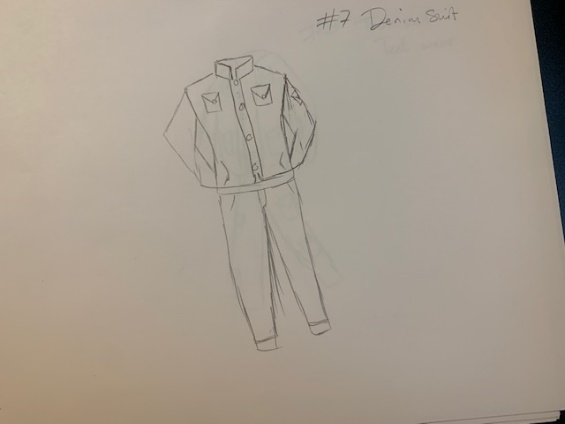 #7 Denim Suit